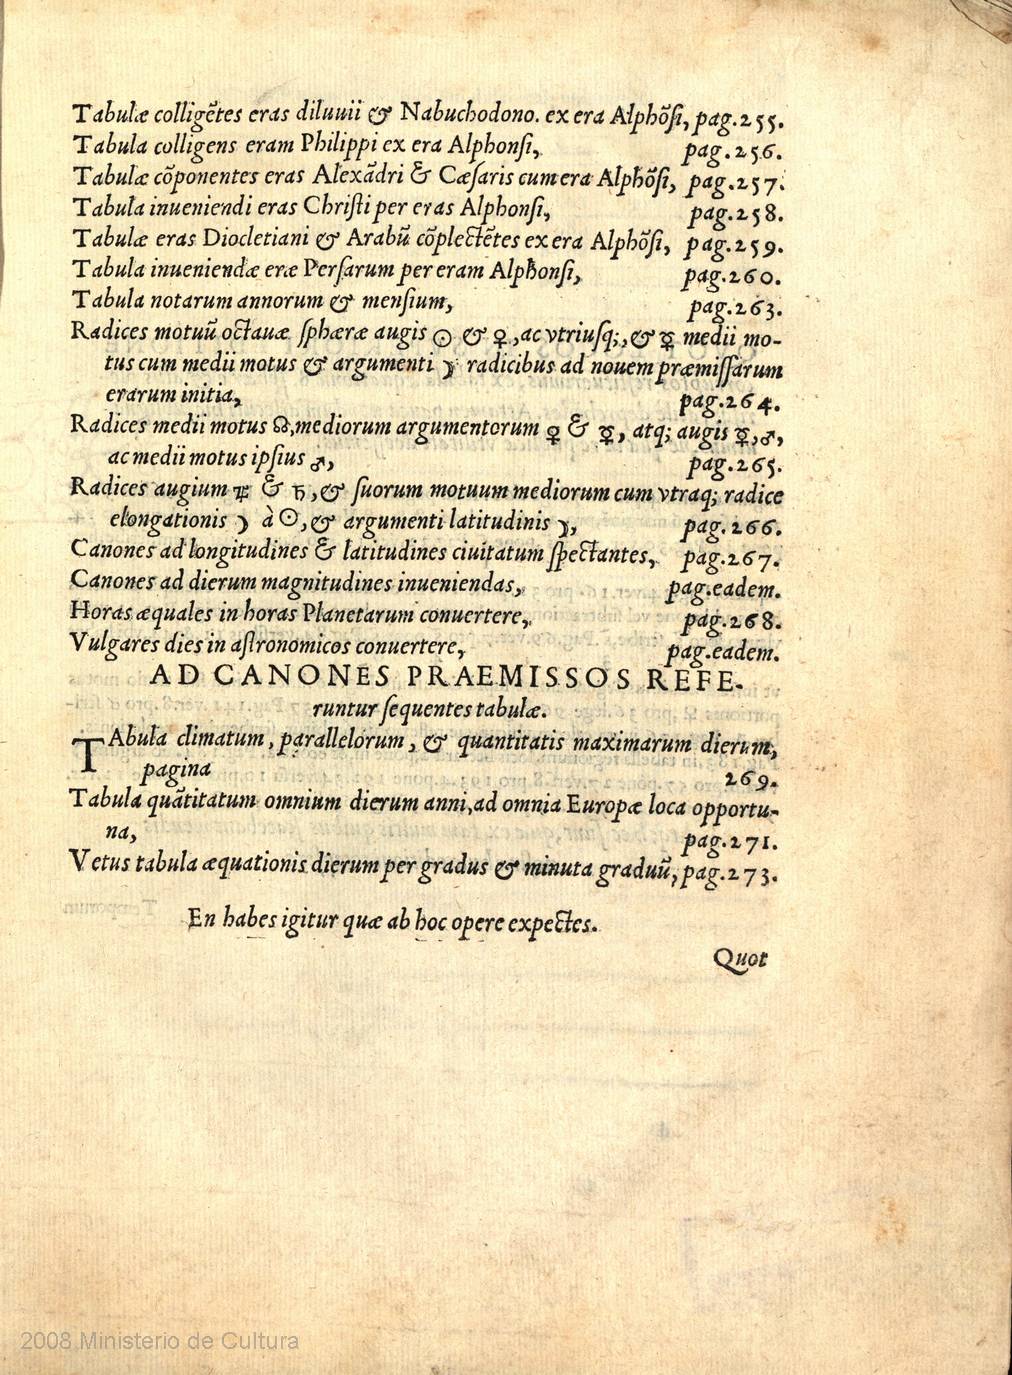 Tabulæ colligẽtes eras diluuii & Nabuchodono. ex era Alphõſi, pag.255.
Tabula colligens eram Philippi ex era Alphonſi, pag.256.
Tabulæ cõponentes eras Alexãdri & Cæſaris cum era Alphõſi, pag.257.
Tabula inueniendi eras Chriſti per eras Alphonſi, pag.258.
Tabulæ eras Diocletiani & Arabũ cõplectẽtes ex era Alphõſi, pag.259.
Tabula inueniendæ eræ Perſarum per eram Alphonſi, pag.260.
Tabula notarum annorum & menſium, pag.263.
Radices motuũ octauæ ſphæræ augis ☉ & ♀, ac vtriuſq;, & ☿ medii mo-
tus cum medii motus & argumenti ☽ radicibus ad nouem præmiſſarum
erarum initia, pag.264.
Radices medii motus ☊, mediorum argumentorum ♀ & ☿, atq; augis ☿, ♂,
ac medii motus ipſius ♂, pag.265.
Radices augium ♃ & ♄, & ſuorum motuum mediorum cum vtraq; radice
elongationis ☽ à ☉, & argumenti latitudinis ☽, pag.266.
Canones ad longitudines & latitudines ciuitatum ſpectantes, pag.267.
Canones ad dierum magnitudines inueniendas, pag.eadem.
Horas æquales in horas Planetarum conuertere, pag.268.
Vulgares dies in aſtronomicos conuertere, pag.eadem.
AD CANONES PRAEMISSOS REFE-
runtur ſequentes tabulæ.
TAbula climatum, parallelorum, & quantitatis maximarum dierum,
pagina 269.
Tabula quãtitatum omnium dierum anni, ad omnia Europæ loca opportu-
na, pag.271.
Vetus tabula æquationis dierum per gradus & minuta graduũ, pag.273.
En habes igitur quæ ab hoc opere expectes.
Quot
2008 Ministerio de Cultura